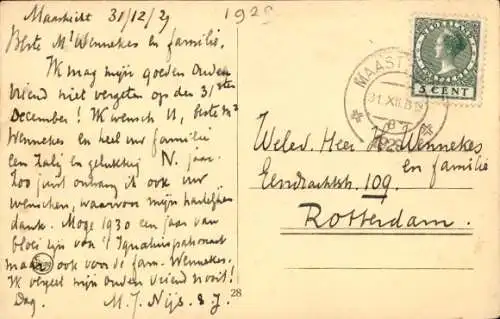 Maastricht 31/12/29
1929
Beste Mr Wennekes en familie.
Ik mag mijn goeden ouden
vriend niet vergeten op den 31sten
December! Ik wensch U, beste Mr
Wennekes en heel uw familie
een Zalig en gelukkig N. jaar.
Zoo juist ontvang ik ook uw
wenschen, waarvoor mijn hartelijken
dank. Moge 1930 een jaar van
bloei zijn van 't Ignatiuspatronaat
maar ook voor de fam. Wennekes.
Ik vergeet mijn ouden vriend nooit!
Dag. M. J. Nijs. s. J.
28
5 CENT
MAAST
31.XII.8
1929
Weled. Heer H. Wennekes
en familie
Eendrachtstr. 109.
Rotterdam.